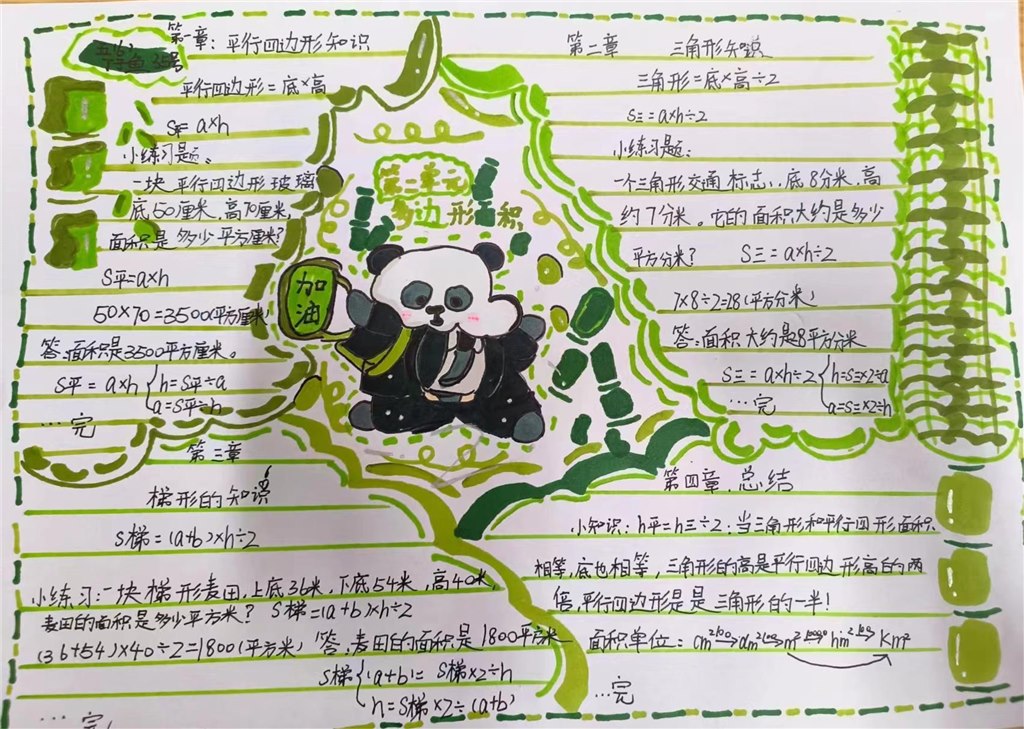 第一章:平行四边形知识
35号
平行四边形=底×高
S平=a×h
小练习题。
一块平行四边形玻璃
底50厘米,高70厘米,
面积是多少平方厘米?
S平=a×h
50×70=3500(平方厘米)
答:面积是3500平方厘米。
S平=a×h
h=S平÷a
a=S平÷h
...完
第二单元
多边形面积
加油
第二章 三角形知识
三角形=底×高÷2
S三=a×h÷2
小练习题:
一个三角形交通标志,底8分米,高
约7分米。它的面积大约是多少
平方分米? S三=a×h÷2
7×8÷2=28(平方分米)
答:面积大约是8平方分米
S三=a×h÷2
h=S三×2÷a
a=S三×2÷h
...完
第三章
梯形的知识
S梯=(a+b)×h÷2
小练习:一块梯形麦田,上底36米,下底54米,高40米,
麦田的面积是多少平方米? S梯=(a+b)×h÷2
(36+54)×40÷2=1800(平方米) 答:麦田的面积是1800平方米
S梯
(a+b)=S梯×2÷h
h=S梯×2÷(a+b)
...完
第四章.总结
小知识:h平=h三÷2:当三角形和平行四形面积
相等,底也相等,三角形的高是平行四边形高的两
倍,平行四边形是是三角形的一半!
面积单位:
...完